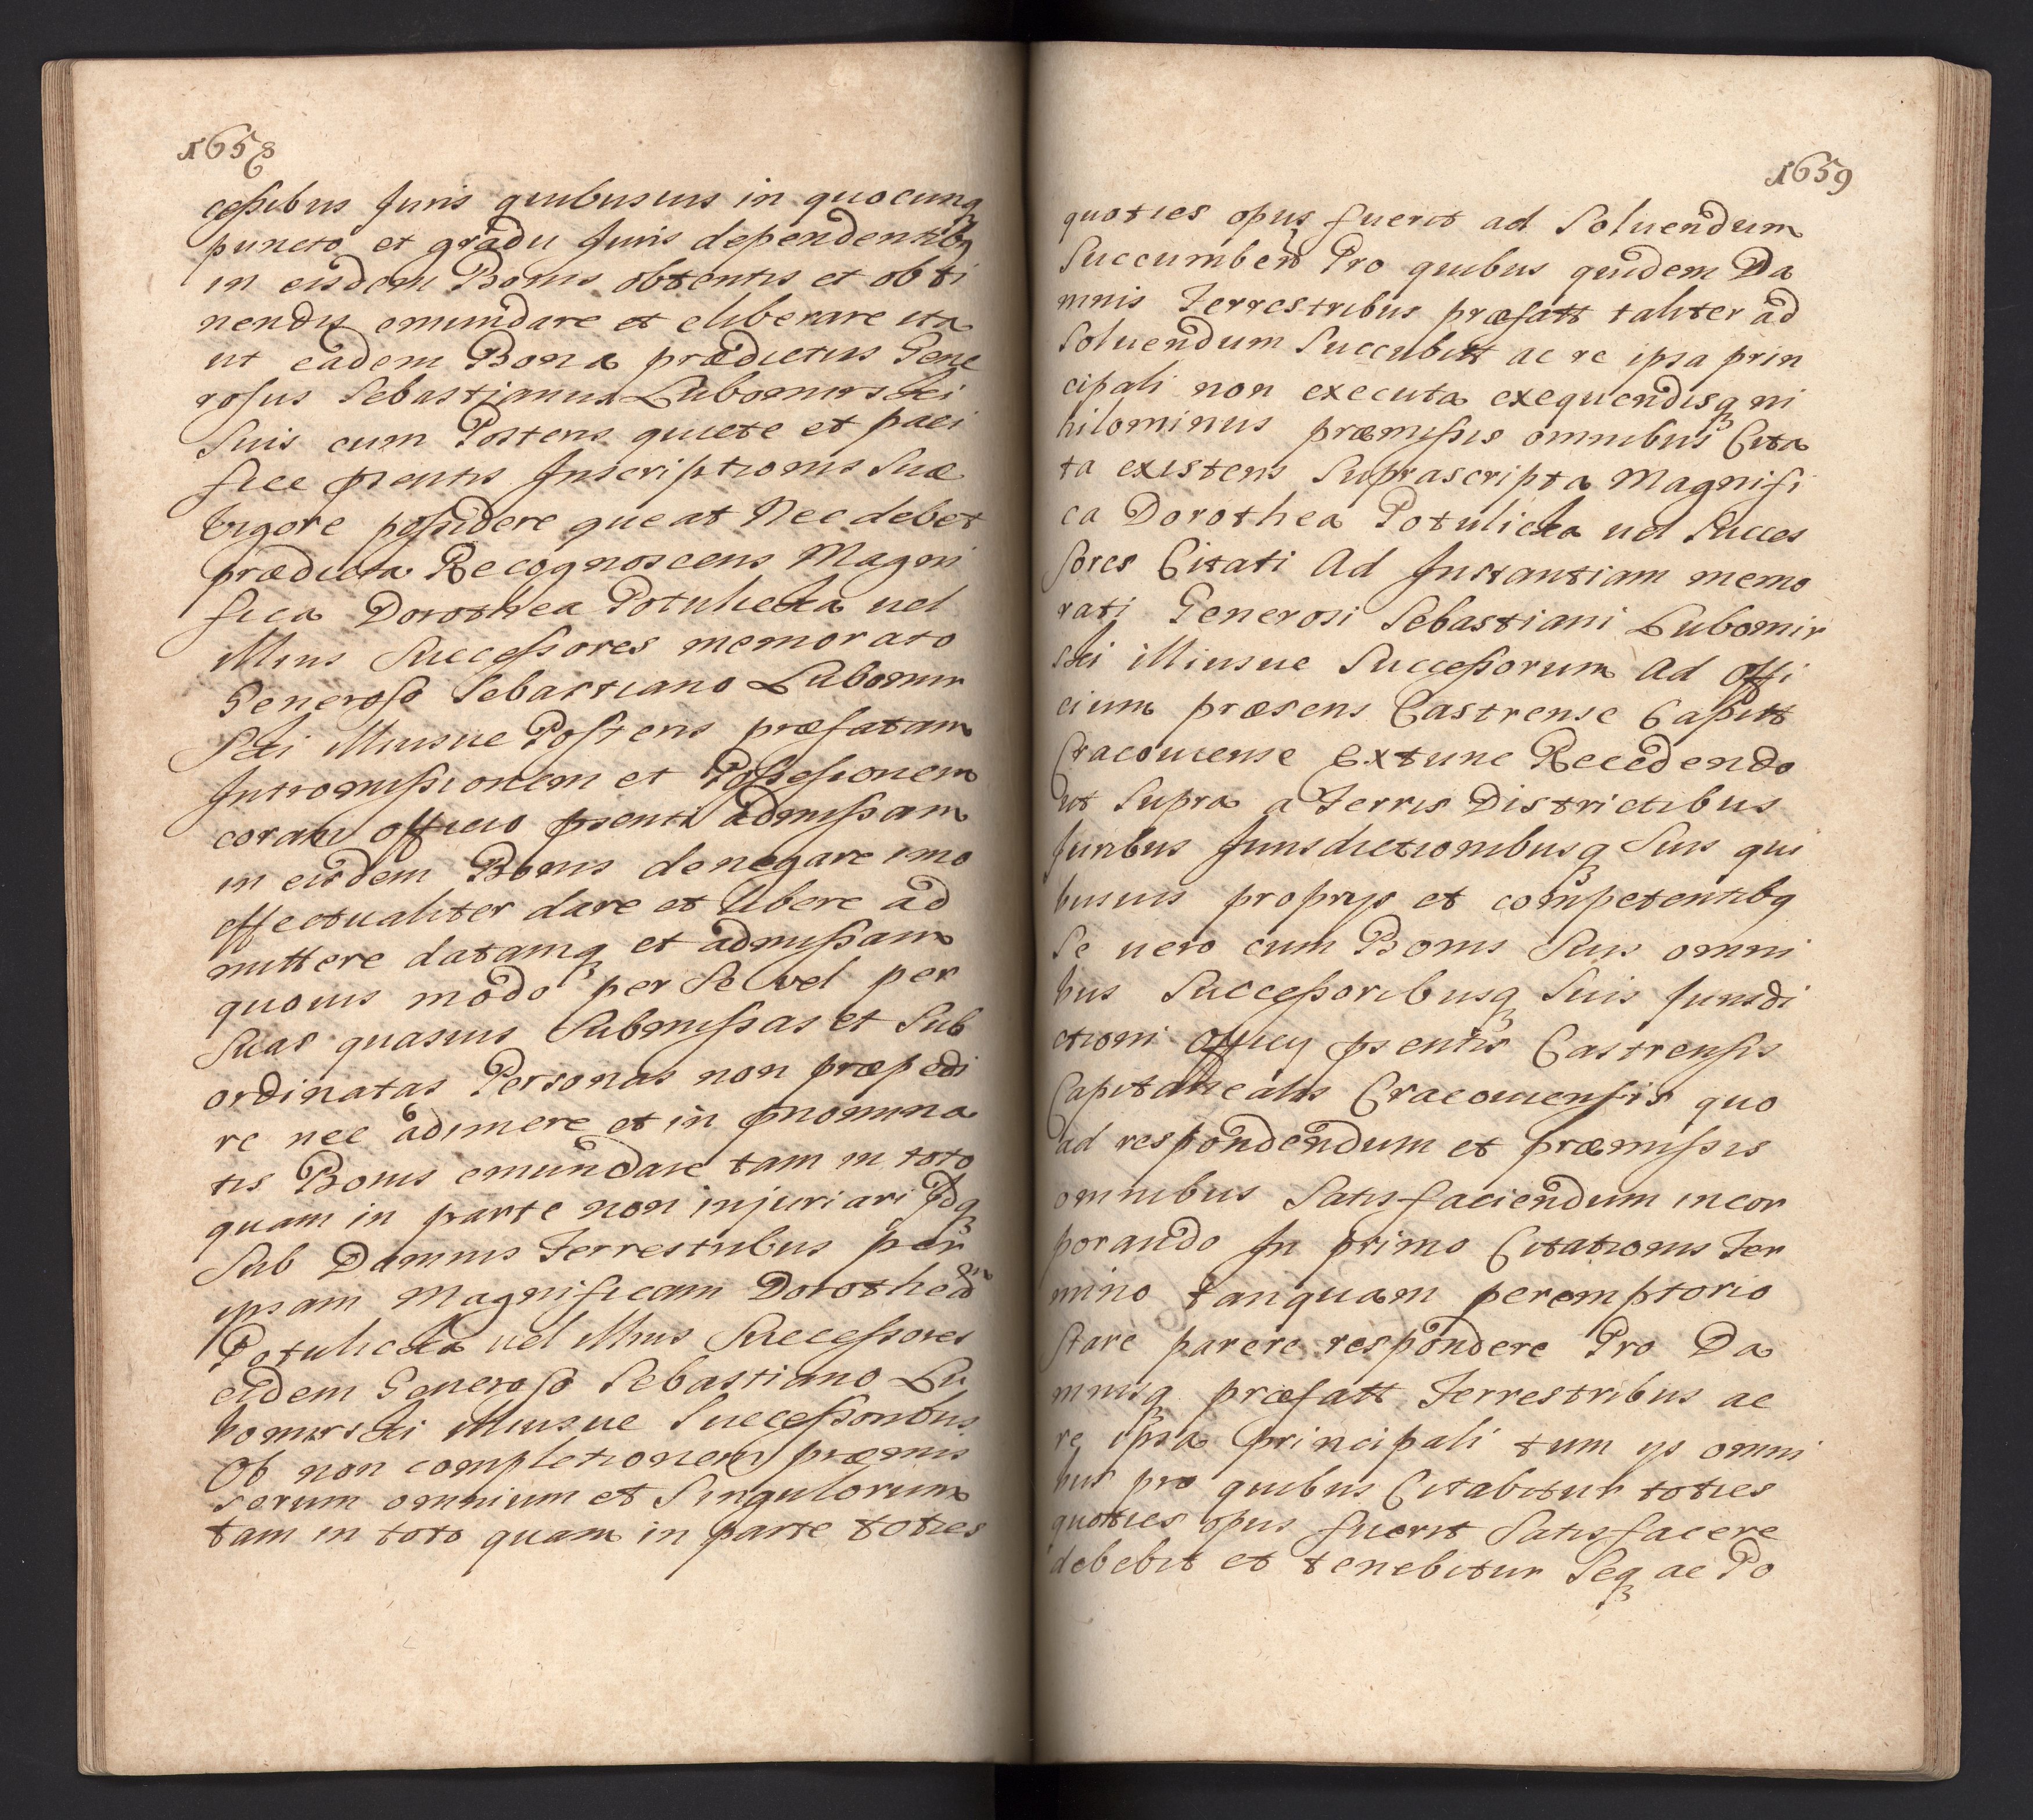 1658
cessibus Juris quibusuis in quocunq3
puncto et gradu Juris dependentibq
in eisdem Bonis obtentis et obti
nendis emundare et eliberare ita
ut eadem Bona prædictus Gene
rosus Sebastianus Lubomirski
Suis cum Posteris quiete et paci
fice pñentis Inscriptionis Suæ
Vigore possidere queat Nec debet
prædicta Recognoscens Magni
fica Dorothea Potulicka uel
Illius Successores memorato
Generoso Sebastiano Lubomir
Ski Illiusue Posteris præfatam
Intromissionem et Possessionem
coram officio pñenti admissam
in eisdem Bonis denegare imo
effectualiter dare et libere ad
mittere datamq3 et admissam
quouis modo per Se vel per
Suas quasuis Submissas et Sub
ordinatas Personas non præpedi
re nec adimere et in pñomina
tis Bonis emundare tam in toto
quam in parte non injuriari Idq3
Sub Damnis Terrestribus per
ipsam Magnificam Dorotheam
Potulicka uel Illius Successores
eidem Generoso Sebastiano Lu
bomirski Illiusue Successoribus
Ob non completionem præmis
sorum omnium et Singulorum
tam in toto quam in parte toties
1659
quoties opus fuerit ad Soluendum
Succumben̄ Pro quibus quidem Da
mnis Terrestribus præfatt taliter ad
Soluendum Succubitt ac re ipsa prin
cipali non executa exequendisq3 ni
hilominus præmissis omnibus Cita
ta existens Suprascripta Magnifi
ca Dorothea Potulicka uel Succes
sores Citati Ad Instantiam memo
rati Generosi Sebastiani Lubomir
ski Illiusue Successorum Ad Offi
cium præsens Castrense Capitt
Cracouiense Extunc Recedendo
ut Supra a Terris Districtibus
Juribus Jurisdictionibusq3 Suis qui
busuis proprys et competentibq
Se uero cum Bonis Suis omni
bus Successoribusq3 Suis Jurisdi
ctioni Officy pñentis Castrensis
Capitanealis Cracouiensis quo
ad respondendum et præmissis
omnibus Satisfaciendum incor
porando In primo Citationis Ter
mino tanquam peremptorio
Stare parere respondere Pro Da
mnisq3 præfatt Terrestribus ac
re ipsa principali tum ys omni
bus pro quibus Citabitur toties
quoties opus fuerit Satisfacere
debebit et tenebitur Seq3 ac Po